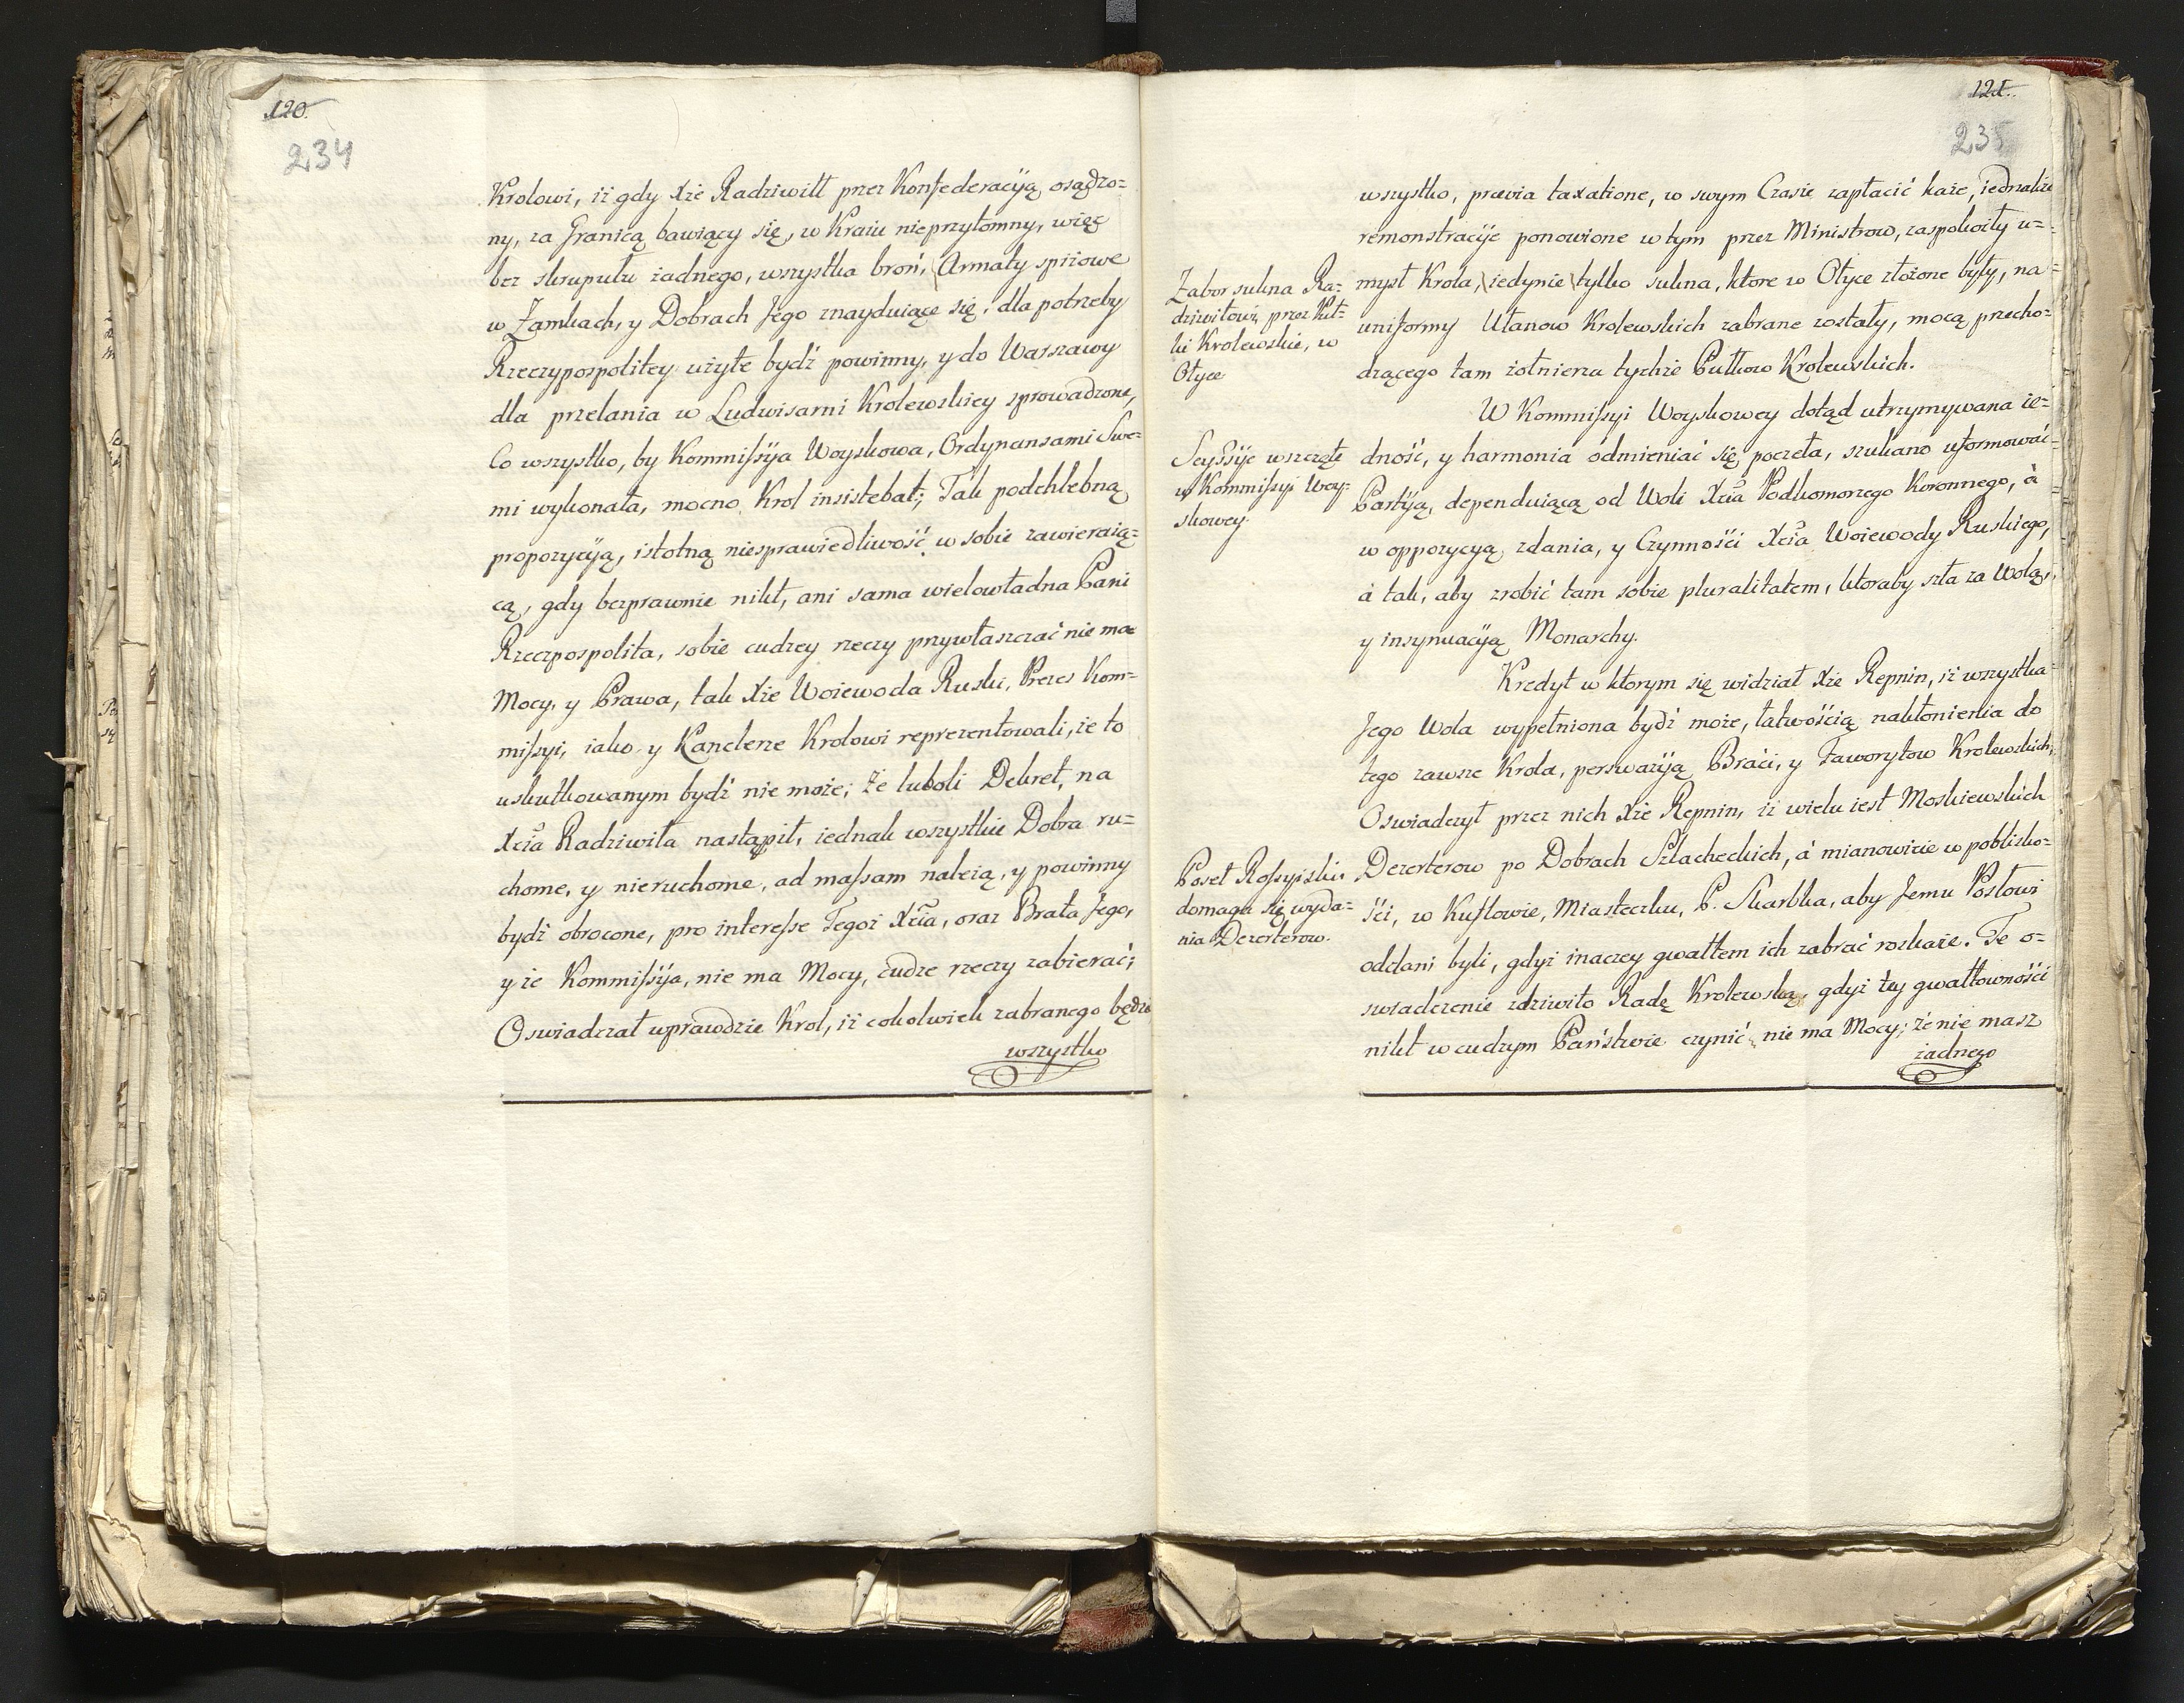 120.
234
Krolowi, iż gdy Xże Radziwiłł przez Konfederacyią osądzo=
ny, za Granicą bawiący się, w Kraiu nieprzytomny, więc
bez skrupułu żadnego, wszystka broń, Armaty spiżowe
w Zamkach, y Dobrach Jego znayduiące się, dla potrzeby
Rzeczypospolitey użyte bydź powinny, y do Warszawy
dla przelania w Ludwisarni Krolewskiey sprowadzone,
Co wszystko, by Kommissyia Woyskowa, Ordynansami Swe=
mi wykonała, mocno Krol insistebat; Tak podchlebną
propozycyią, istotną niesprawiedliwość w sobie zawieraią=
cą, gdy bezprawnie nikt, ani sama wielowładna Pani
Rzeczpospolita, sobie cudzey rzeczy przywłaszczać nie ma
Mocy, y Prawa, tak Xże Woiewoda Ruski, Prezes Kom=
missyi, iako y Kanclerze Krolowi reprezentowali, że to
uskutkowanym bydź nie może; Że luboli Dekret, na
Xcia Radziwiła nastąpił, iednak wszystkie Dobra ru=
chome, y nieruchome, ad massam należą, y powinny
bydź obrocone, pro interesse Tegoż Xcia, oraz Brata Jego,
y że Kommissyia, nie ma Mocy, cudze rzeczy zabierać;
Oswiadczał wprawdzie Krol, iż cokolwiek zabranego będzie
wszystko
121.
235
wszystko, prævia taxatione, w swym Czasie zapłacić każe, iednakże
remonstracyie ponowione w tym przez Ministrow, zaspokoiły u=
mysł Krola, iedynie tylko sukna, ktore w Ołyce złożone były, na
uniformy Ułanow Krolewskich zabrane zostały, mocą przecho=
dzącego tam żołnierza tychże Pułkow Krolewskich.
Zabor sukna Ra=
dziwiłowi, przez Puł=
ki Krolewskie, w
Ołyce
W Kommissyi Woyskowey dotąd utrzymywana ie=
dność, y harmonia odmieniać się poczeła, szukano uformować
Partyią, dependuiącą od Woli Xcia Podkomorzego Koronnego, à
w oppozycyą zdania, y Czynności Xcia Woiewody Ruskiego,
à tak, aby zrobić tam sobie pluralitatem, ktoraby szła za Wolą,
y insynuacyią Monarchy.
Scyssyie wszczęte
w Kommissyi Woy=
skowey.
Kredyt w ktorym się widział Xże Repnin, iż wszystka
Jego Wola wypełniona bydź może, łatwością nakłonienia do
tego zawsze Krola, perswazyią Braci, y Faworytow Krolewskich,
Oswiadczył przez nich Xże Repnin, iż wielu iest Moskiewskich
Dezerterow po Dobrach Szlacheckich, à mianowicie w poblisko=
ści, w Kuflowie, Miasteczku, P. Skarbka, aby Jemu Posłowi
oddani byli, gdyż inaczey gwałtem ich zabrać rozkaże. Te o=
swiadczenie zdziwiło Radę Krolewską, gdyż tey gwałtowności
nikt w cudzym Państwie czynić nie ma Mocy; że nie masz
żadnego
Poseł Rossyiski
domaga się wyda=
nia Dezerterow.